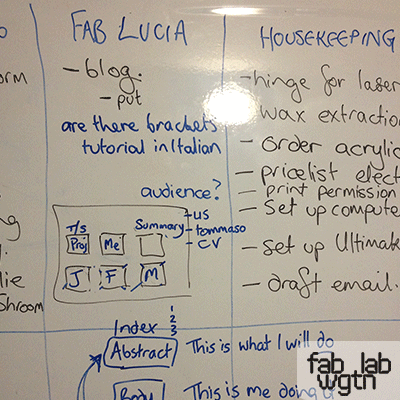 FAB LUCIA
- blog.
- put
are there brackets
tutorial in Italian
audience?
- us
Summary - tommaso
- CV
T/s
Proj Me
J F M
Index 1
2
3
Abstract This is what I will do
Body This is me doing
HOUSEKEEPING
- hinge for laser
wax extraction
- order acrylic
- pricelist elect
- print permission
- Set up compute
- set up Ultimak
- draft email.
orm
ng
lie
shroom
fab lab
wgtn